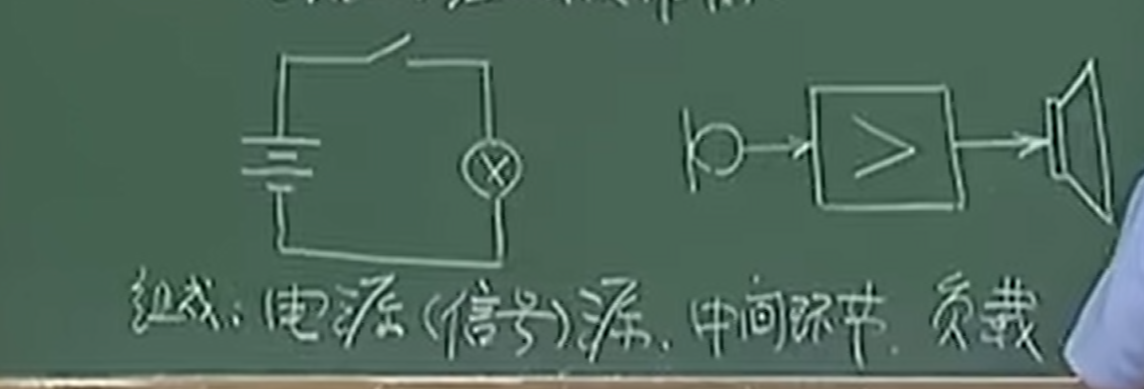 组成：电源(信号)源、中间环节、负载